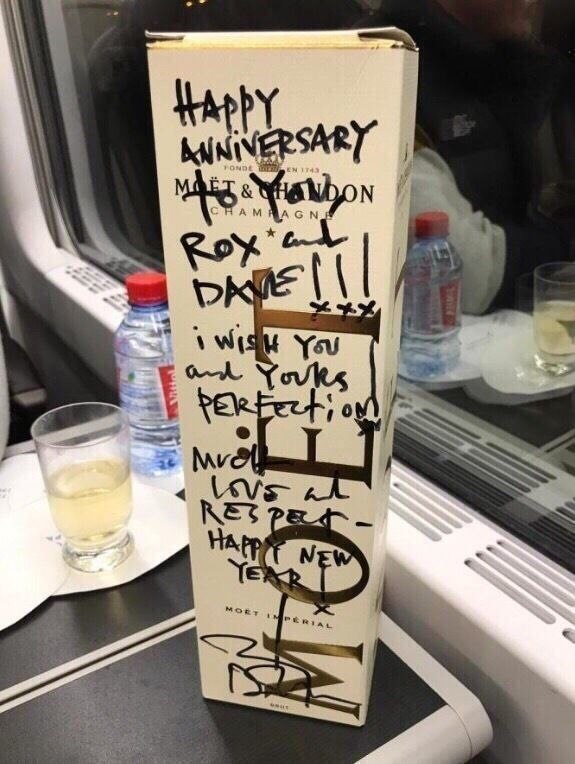 HAPPY
ANNIVERSARY
FONDÉ EN 1743
MOËT & CHANDON
to You,
CHAMPAGNE
ROX and
DAVE!!!
xxx
i WISH YOU
and YOURS
PERFECTION
MUCH
LOVE and
RESPECT -
HAPPY NEW
YEAR!
x
MOËT IMPÉRIAL
MOËT
BRUT
Vittel